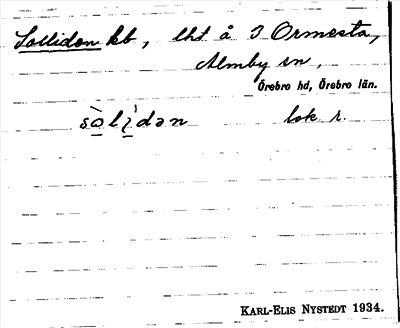 Solliden kb, lht å 3 Ormesta,
Almby sn,
Örebro hd, Örebro län.
sò̱li̱̇dən lok r.
KARL-ELIS NYSTEDT 1934.